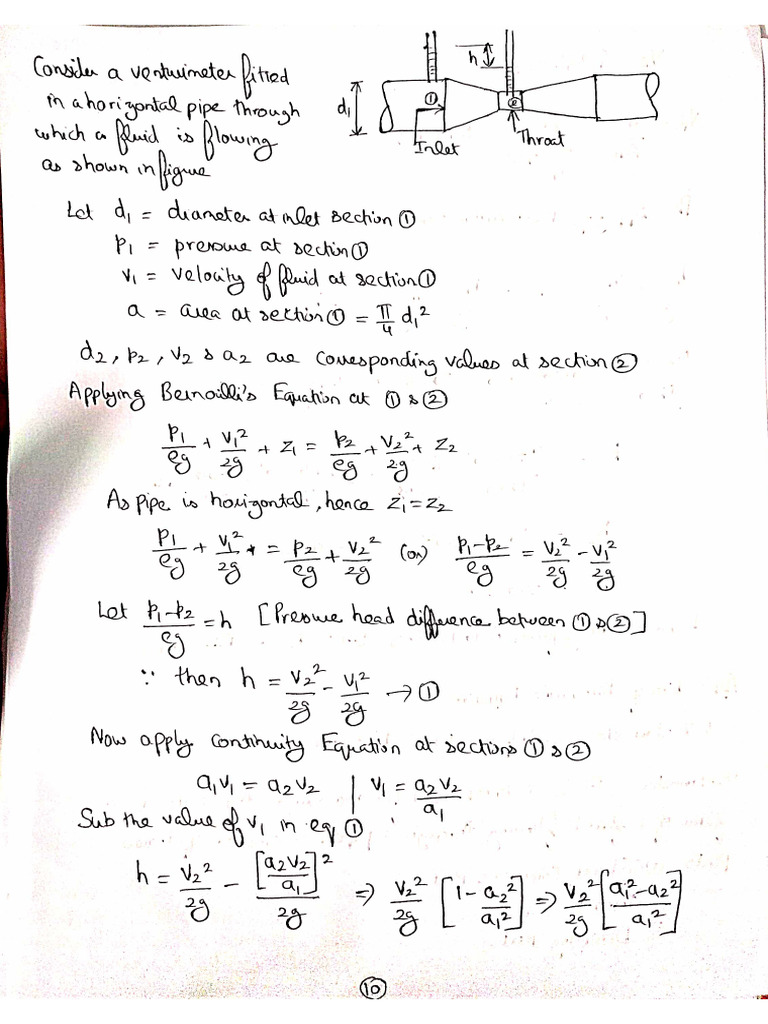 Consider a venturimeter fitted
in a horizontal pipe through
which a fluid is flowing
as shown in figure
h
d₁
①
②
Inlet
Throat
Let d₁ = diameter at inlet section ①
p₁ = pressure at section ①
v₁ = velocity of fluid at section ①
a = area at section ① = π/4 d₁²
d₂, p₂, v₂ & a₂ are corresponding values at section ②
Applying Bernoilli's Equation at ① & ②
p₁/ρg + v₁²/2g + z₁ = p₂/ρg + v₂²/2g + z₂
As pipe is horizontal, hence z₁ = z₂
p₁/ρg + v₁²/2g = p₂/ρg + v₂²/2g (or) p₁-p₂/ρg = v₂²/2g - v₁²/2g
Let p₁-p₂/ρg = h [Pressure head difference between ① & ②]
∵ then h = v₂²/2g - v₁²/2g → ①
Now apply Continuity Equation at sections ① & ②
a₁v₁ = a₂v₂ | v₁ = a₂v₂/a₁
Sub the value of v₁ in eq ①
h = v₂²/2g - [a₂v₂/a₁]²/2g ⇒ v₂²/2g [1 - a₂²/a₁²] ⇒ v₂²/2g [a₁²-a₂²/a₁²]
⑩